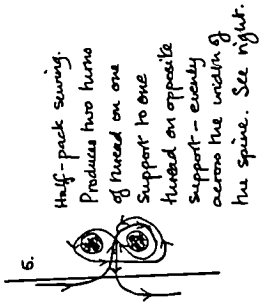 5.
Half-pack sewing.
Produces two turns
of thread on one
support to one
thread on opposite
support - evenly
across the width of
the spine. See right.